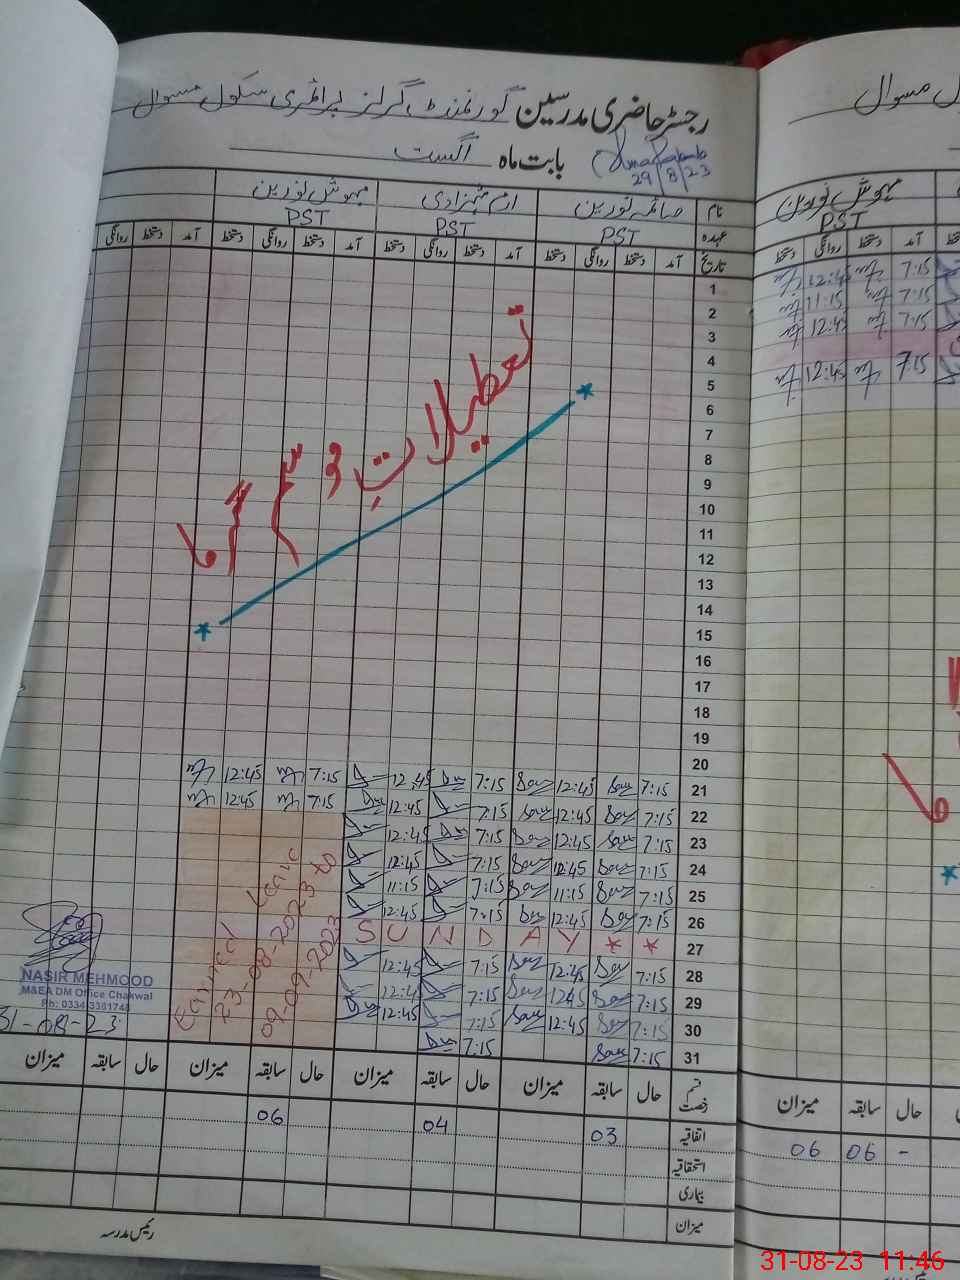 رجسٹر حاضری مدرسین گورنمنٹ گرلز پرائمری سکول مسوال
بابت ماہ اگست
29/8/23
نام صائمہ نورین ارم شہزادی مہوش نورین
عہدہ PST PST PST
تاریخ آمد دستخط روانگی دستخط آمد دستخط روانگی دستخط آمد دستخط روانگی دستخط آمد دستخط روانگی
1
2
3
4
5
6
7
8
9
10
11
12
13
14
15
16
17
18
19
20
تعطیلات موسم گرما
21 7:15 12:45 7:15 12:45 7:15 12:45
22 7:15 12:45 7:15 12:45 7:15 12:45
23 7:15 12:45 7:15 12:45
24 7:15 12:45 7:15 12:45
25 7:15 11:15 7:15 11:15
26 7:15 12:45 7:15 12:45
27 SUNDAY **
28 7:15 12:45 7:15 12:45
29 7:15 12:45 7:15 12:45
30 7:15 12:45 7:15 12:45
31 7:15 7:15
Earned Leave
23-08-2023 to
09-09-2023
NASIR MEHMOOD
M&EA DM Office Chakwal
Ph: 0334-3381748
31-08-23
قسم رخصت حال سابقہ میزان حال سابقہ میزان حال سابقہ میزان حال سابقہ میزان
اتفاقیہ 03 04 06
استحقاقیہ
بیماری
میزان
رئیس مدرسہ
مسوال
مہوش نورین
PST
آمد دستخط روانگی دستخط
7:15 12:45
7:15 11:15
7:15 12:45
7:15 12:45
حال سابقہ میزان
- 06 06
31-08-23 11:46